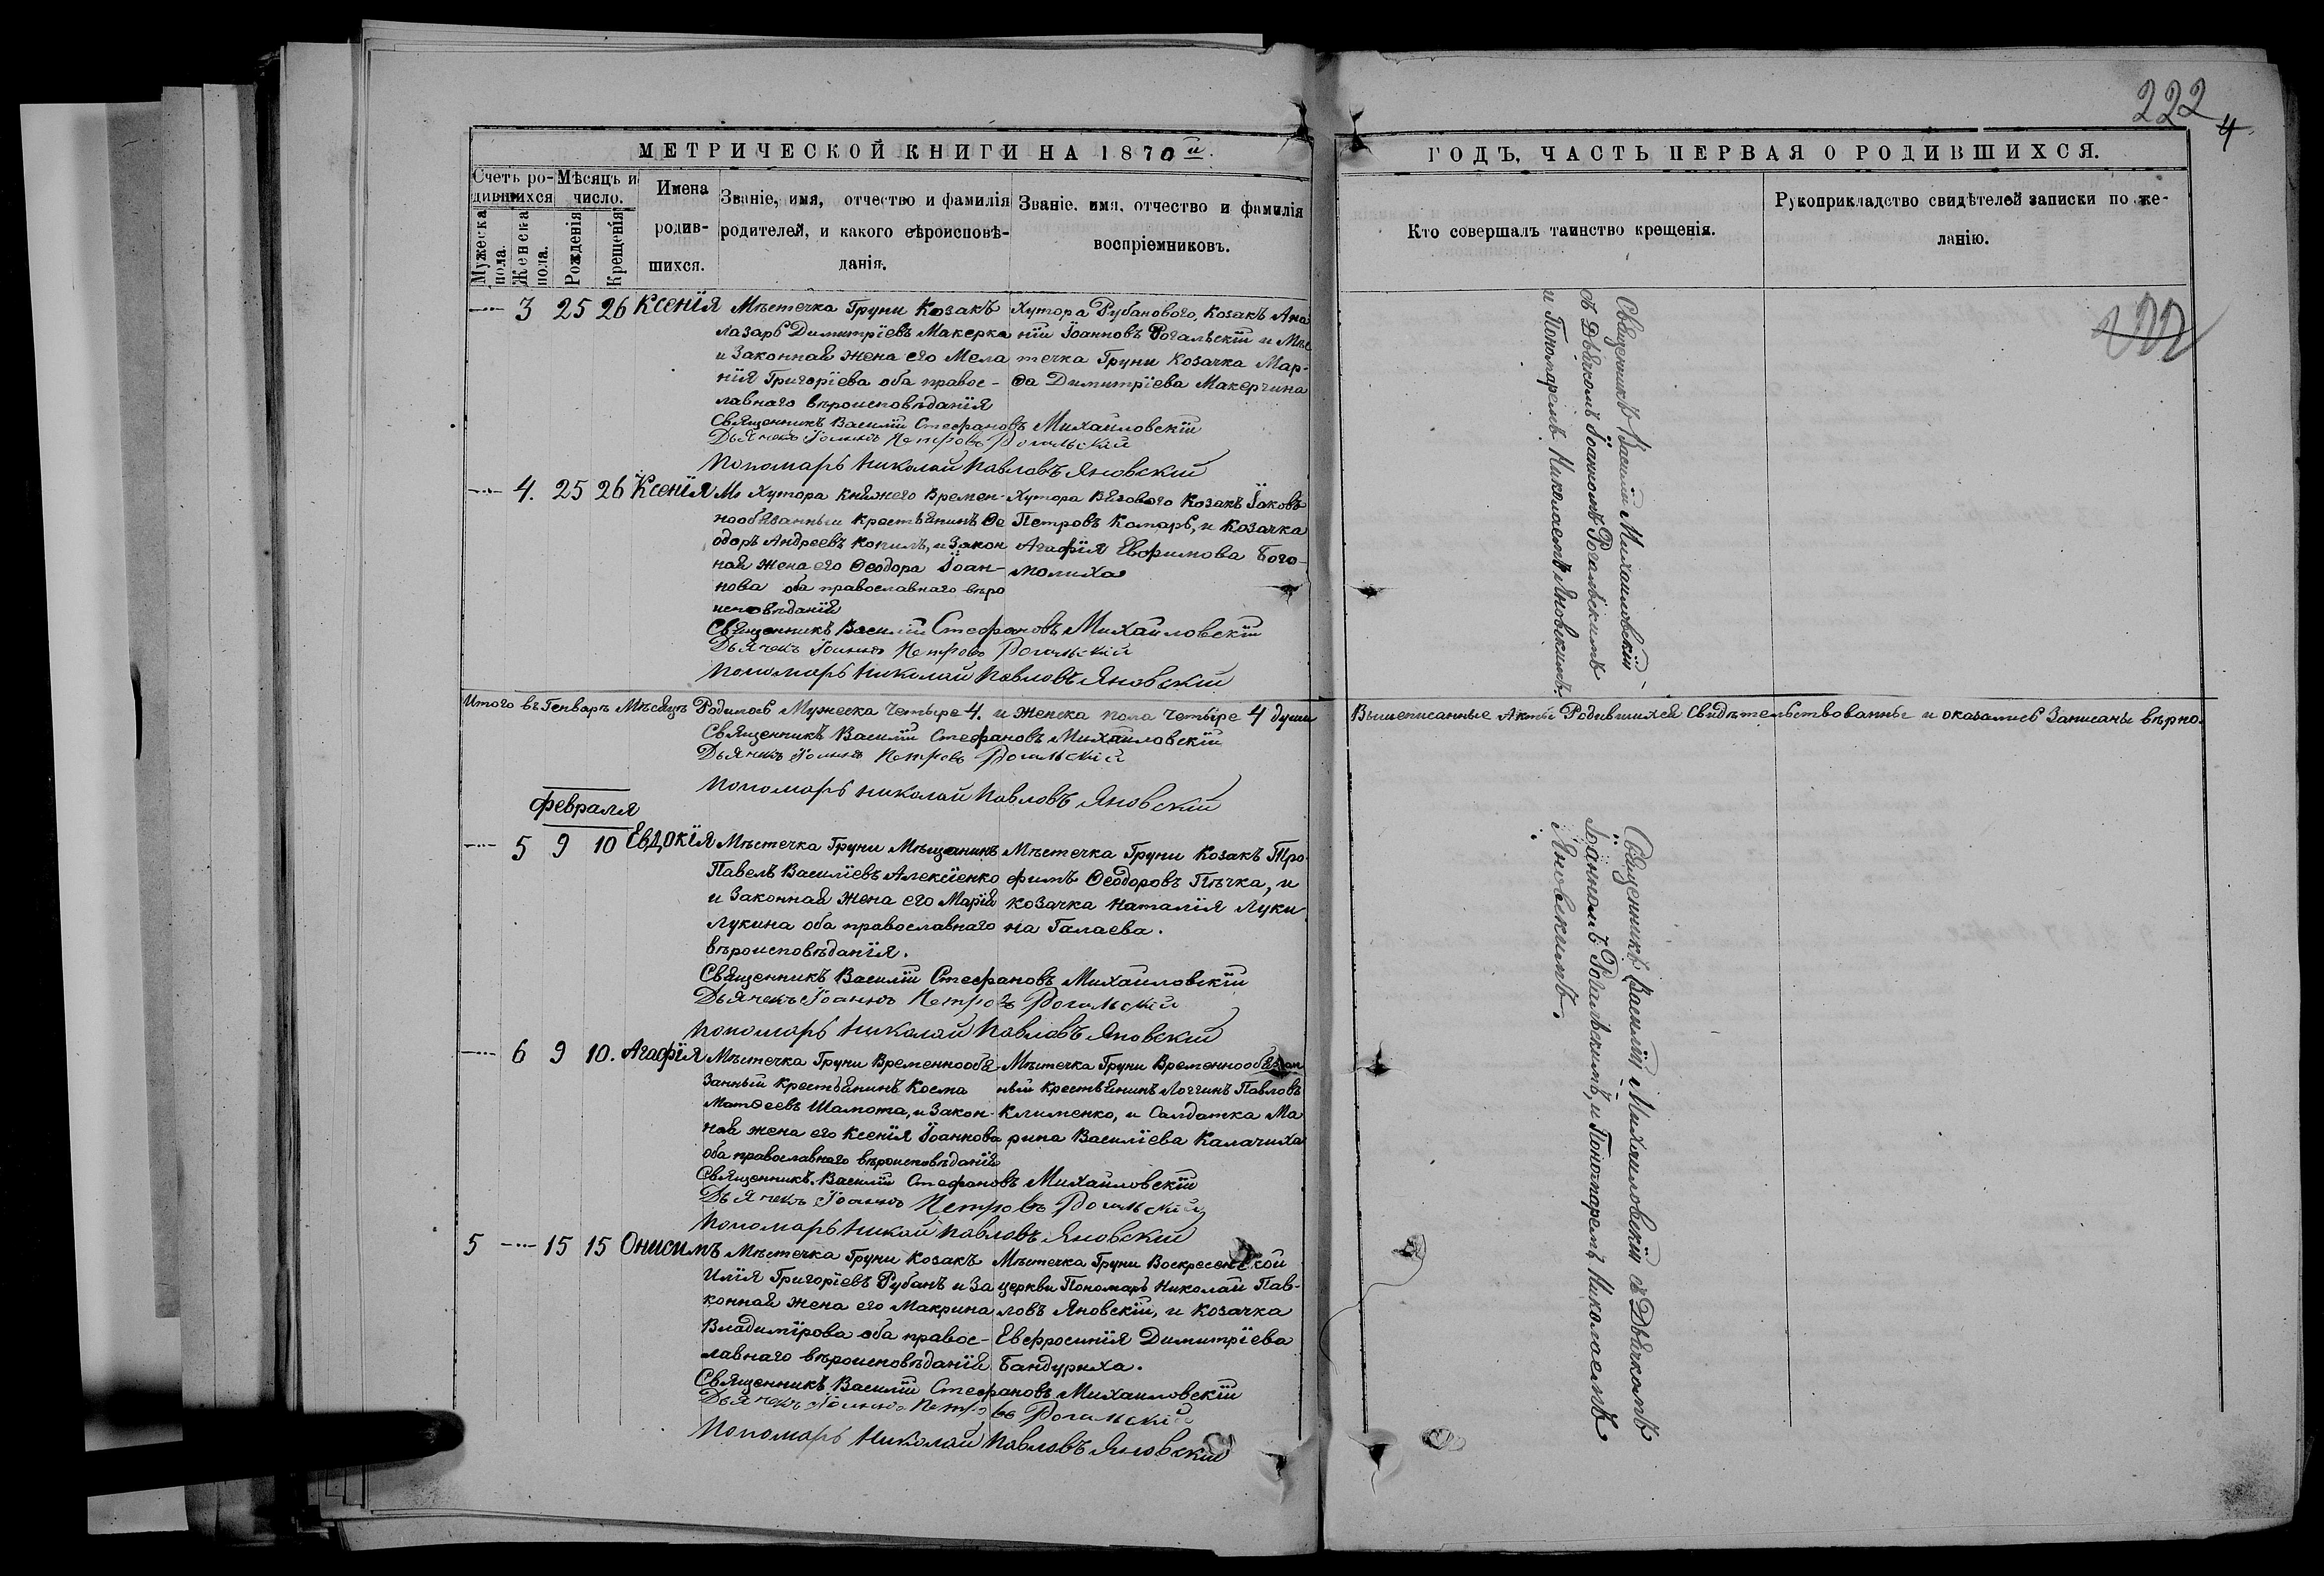 222
4
МЕТРИЧЕСКОЙ КНИГИ НА 1870й.
Счетъ ро-
дившихся
Мѣсяцъ и
число.
Мужеска
пола.
Женска
пола.
Рожденія
Крещенія
Имена
родив-
шихся.
Званіе, имя, отчество и фамилія
родителей, и какого вѣроисповѣ-
данія.
Званіе, имя, отчество и фамилія
воспріемниковъ.
3 25 26 Ксенія
Мѣстечка Груни Козакъ
Лазарь Димитріевъ Макерка
и Законная жена его Мела
нія Григоріева оба правос-
лавнаго вѣроисповѣданія
Хутора Рубановаго, Козакъ Ана
ній Іоанновъ Рогальскій и Мѣс
течка Груни Козачка Мар-
ѳа Димитріева Макерчина
Священникъ Василій Стефановъ Михайловскій
Дьячекъ Іоаннъ Петровъ Рогальскій
Пономарь Николай Павловъ Яновскій
4. 25 26 Ксенія
Хутора Княжего Времен-
нообязанный крестьянинъ Ѳе
одоръ Андреевъ Копилъ, и Закон
ная жена его Ѳеодора Іоан-
нова оба православнаго вѣро
исповѣданія
Хутора Вязового Козакъ Іаковъ
Петровъ Комаръ, и Козачка
Агафія Евфимова Бого-
молиха
Священникъ Василій Стефановъ Михайловскій
Дьячекъ Іоаннъ Петровъ Рогальскій
Пономарь Николай Павловъ Яновскій
Итого въ Генварѣ Мѣсяцѣ Родилось Мужеска Четыре 4. и Женска пола Четыре 4 души
Священникъ Василій Стефановъ Михайловскій
Дьячекъ Іоаннъ Петровъ Рогальскій
Пономарь Николай Павловъ Яновскій
Февраля
5 9 10 Евдокія
Мѣстечка Груни Мѣщанинъ
Павелъ Василіевъ Алексіенко
и Законная жена его Марія
Лукина оба православнаго
вѣроисповѣданія.
Мѣстечка Груни Козакъ Тро
фимъ Ѳеодоровъ Пѣчка, и
козачка Наталія Луки
на Галаева.
Священникъ Василій Стефановъ Михайловскій
Дьячекъ Іоаннъ Петровъ Рогальскій
Пономарь Николай Павловъ Яновскій
6 9 10. Агафія
Мѣстечка Груни Временнообя
занный крестьянинъ Косма
Матѳеевъ Шамота, и Закон-
ная жена его Ксенія Іоаннова
оба православнаго вѣроисповѣданія
Мѣстечка Груни Временнообязан
ный крестьянинъ Логгинъ Павловъ
Клименко, и Салдатка Ма
рина Василіева Калачиха
Священникъ Василій Стефановъ Михайловскій
Дьячекъ Іоаннъ Петровъ Рогальскій
Пономарь Никлай Павловъ Яновскій
5 15 15 Онисимъ
Мѣстечка Груни Козакъ
Илія Григоріевъ Рубанъ и За
конная жена его Макрина
Владимірова оба правос-
лавнаго вѣроисповѣданія
Мѣстечка Груни Воскресенской
церкви Пономарь Николай Пав-
ловъ Яновскій, и Козачка
Евфросинія Димитріева
Бандуриха.
Священникъ Василій Стефановъ Михайловскій
Дьячекъ Іоаннъ Петровъ Рогальскій
Пономарь Николай Павловъ Яновскій
ГОДЪ, ЧАСТЬ ПЕРВАЯ О РОДИВШИХСЯ.
Кто совершалъ таинство крещенія.
Рукоприкладство свидѣтелей записки по же-
ланію.
Священникъ Василій Михайловскій
съ Дьячкомъ Іоанномъ Рогальскимъ
и Пономаремъ Николаемъ Яновскимъ.
222
Вышеписанные Акты Родившихся Свидѣтельствованны и оказались Записаны вѣрно.
Священникъ Василій Михайловскій съ Дьячкомъ
Іоанномъ Рогальскимъ, и Пономаремъ Николаемъ
Яновскимъ.